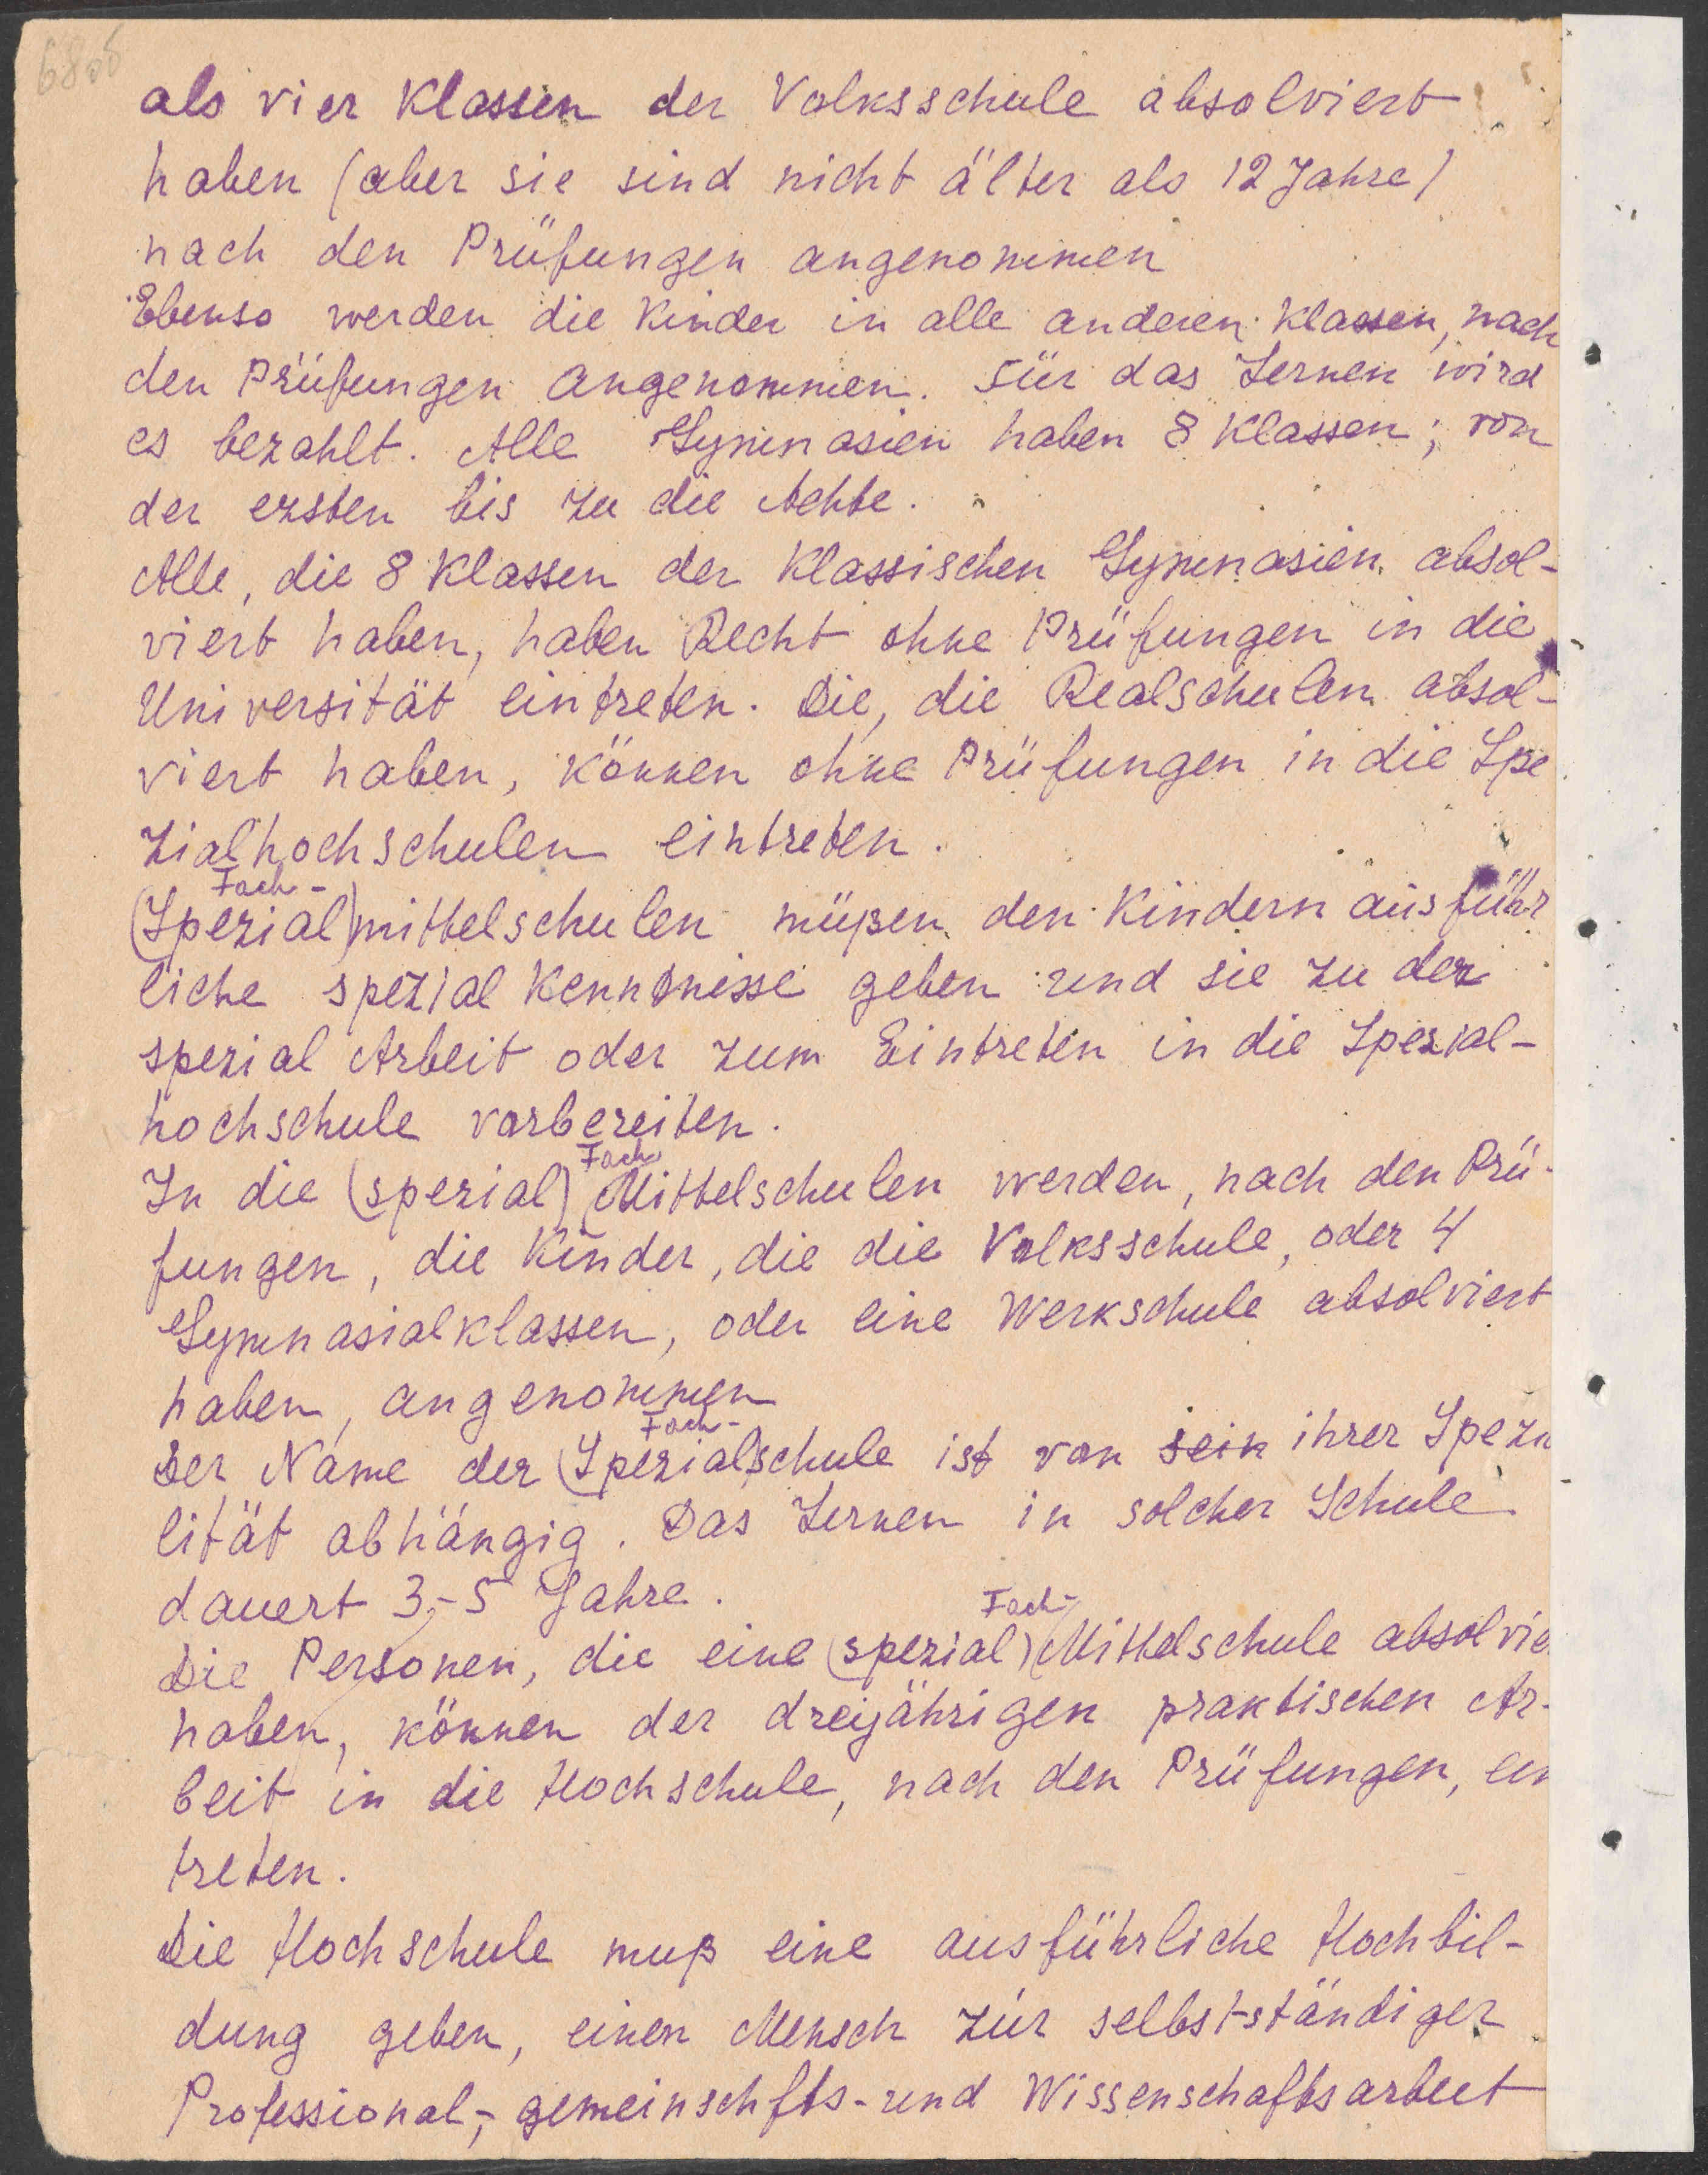 68об
als vier Klassen der Volksschule absolviert
haben (aber sie sind nicht älter als 12 Jahre)
nach den Prüfungen angenommen
Ebenso werden die Kinder in alle anderen Klassen, nach
den Prüfungen angenommen. Für das Lernen wird
es bezahlt. Alle Gymnasien haben 8 Klassen; von
der ersten bis zu die Achte.
Alle, die 8 Klassen der Klassischen Gymnasien absol-
viert haben, haben Recht ohne Prüfungen in die
Universität eintreten. Die, die Realschulen absol-
viert haben, können ohne Prüfungen in die Spe
zialhochschulen eintreten.
Fach-
(Spezial)mittelschulen müßen den Kindern ausführ
liche spezial Kenntnisse geben und sie zu der
spezial Arbeit oder zum Eintreten in die Spezial-
hochschule vorbereiten.
Fach
In die (spezial) Mittelschulen werden, nach den Prü-
fungen, die Kinder, die die Volksschule, oder 4
Gymnasialklassen, oder eine Werkschule absolviert
haben, angenommen
Fach-
Der Name der (Spezialschule ist von sein ihrer Spezia
lität abhängig. Das Lernen in solcher Schule
dauert 3-5 Jahre.
Fach-
Die Personen, die eine (spezial) Mittelschule absolvie
haben, können der dreijährigen praktischen Ar-
beit in die Hochschule, nach den Prüfungen, ein
treten.
Die Hochschule muß eine ausführliche Hochbil-
dung geben, einen Mensch zur selbst-ständiger
Professional-, gemeinschfts- und Wissenschaftsarbeit